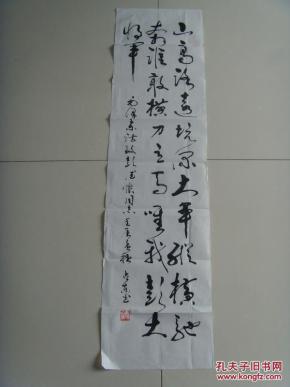 山高路远坑深大军纵横驰
奔谁敢横刀立马唯我彭大
将军
毛泽东诗致彭德怀同志
孔夫子旧书网